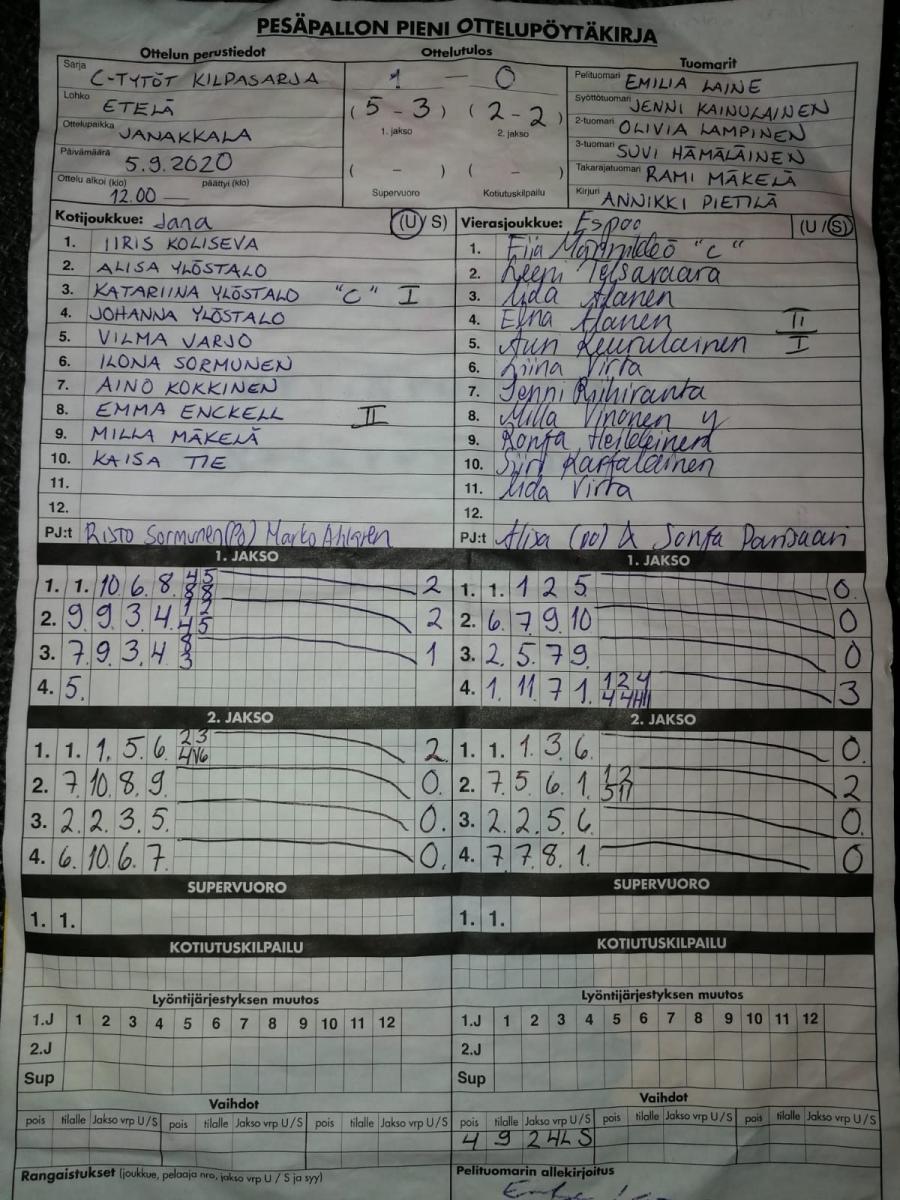 PESÄPALLON PIENI OTTELUPÖYTÄKIRJA
Ottelun perustiedot Ottelutulos Tuomarit
Sarja C-TYTÖT KILPASARJA
Lohko ETELÄ
Ottelupaikka JANAKKALA
Päivämäärä 5.9.2020
Ottelu alkoi (klo) 12.00 — päättyi (klo)
1 — 0
( 5 - 3 ) ( 2 - 2 )
1. jakso 2. jakso
( - ) ( - )
Supervuoro Kotiutuskilpailu
Pelituomari EMILIA LAINE
Syöttötuomari JENNI KAINULAINEN
2-tuomari OLIVIA LAMPINEN
3-tuomari SUVI HÄMÄLÄINEN
Takarajatuomari RAMI MÄKELÄ
Kirjuri ANNIKKI PIETILÄ
Kotijoukkue: Jana (U / S)
1. IIRIS KOLISEVA
2. ALISA YLÖSTALO
3. KATARIINA YLÖSTALO "C" I
4. JOHANNA YLÖSTALO
5. VILMA VARJO
6. ILONA SORMUNEN
7. AINO KOKKINEN
8. EMMA ENCKELL II
9. MILLA MÄKELÄ
10. KAISA TIE
11.
12.
PJ:t Risto Sormunen (Po) Marko Ahlgren
Vierasjoukkue: Espoo (U / S)
1. Eija "C"
2.
3. Iida Alanen
4. Alanen II
5. Keurulainen I
6. Liina Virta
7. Jenni Riihiranta
8. Milla
9. Ronja
10. Siiri Karjalainen
11. Iida Virta
12.
PJ:t Alisa (po) & Sonja
1. JAKSO
1. 1. 10. 6. 8. 4 5 2
8 8
2. 9. 9. 3. 4. 1 2 2
4 5
3. 7. 9. 3. 4. 8 1
3
4. 5.
1. JAKSO
1. 1. 1 2 5 0.
2. 6. 7. 9. 10 0
3. 2. 5. 7 9. 0
4. 1. 11. 7 1. 1 2 4 3
2. JAKSO
1. 1. 1. 5. 6. 2 3 2.
2. 7. 10. 8. 9. 0.
3. 2. 2. 3. 5. 0.
4. 6. 10. 6. 7. 0.
2. JAKSO
1. 1. 1. 3. 6. 0.
2. 7. 5. 6. 1. 1 2 2
5 11
3. 2. 2. 5. 6. 0.
4. 7. 7. 8. 1. 0
SUPERVUORO
1. 1.
SUPERVUORO
1. 1.
KOTIUTUSKILPAILU
KOTIUTUSKILPAILU
Lyöntijärjestyksen muutos
1.J 1 2 3 4 5 6 7 8 9 10 11 12
2.J
Sup
Lyöntijärjestyksen muutos
1.J 1 2 3 4 5 6 7 8 9 10 11 12
2.J
Sup
Vaihdot
pois tilalle Jakso vrp U / S pois tilalle Jakso vrp U / S pois tilalle Jakso vrp U / S
Vaihdot
pois tilalle Jakso vrp U / S pois tilalle Jakso vrp U / S pois tilalle Jakso vrp U / S
4 9 2 4L S
Rangaistukset (joukkue, pelaaja nro, jakso vrp U / S ja syy)
Pelituomarin allekirjoitus